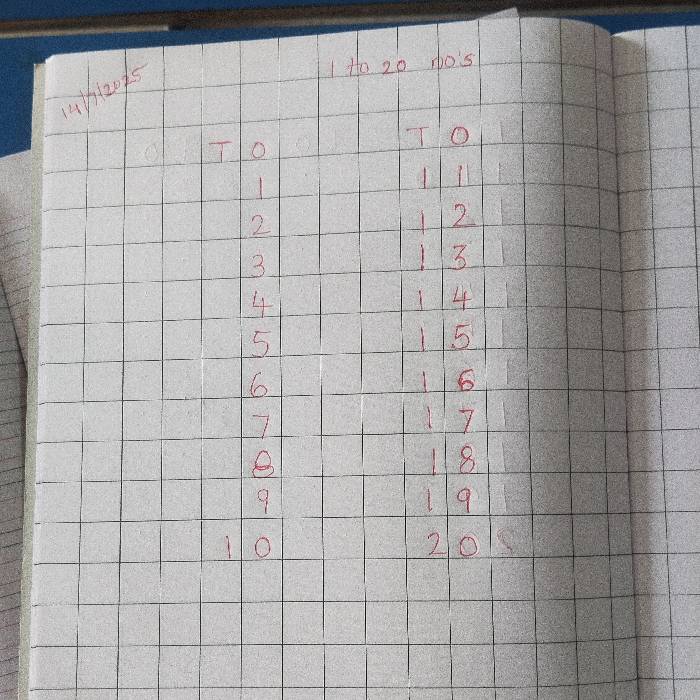 14/7/2025
1 to 20 no's
T O T O
1 11
2 12
3 13
4 14
5 15
6 16
7 17
8 18
9 19
10 20